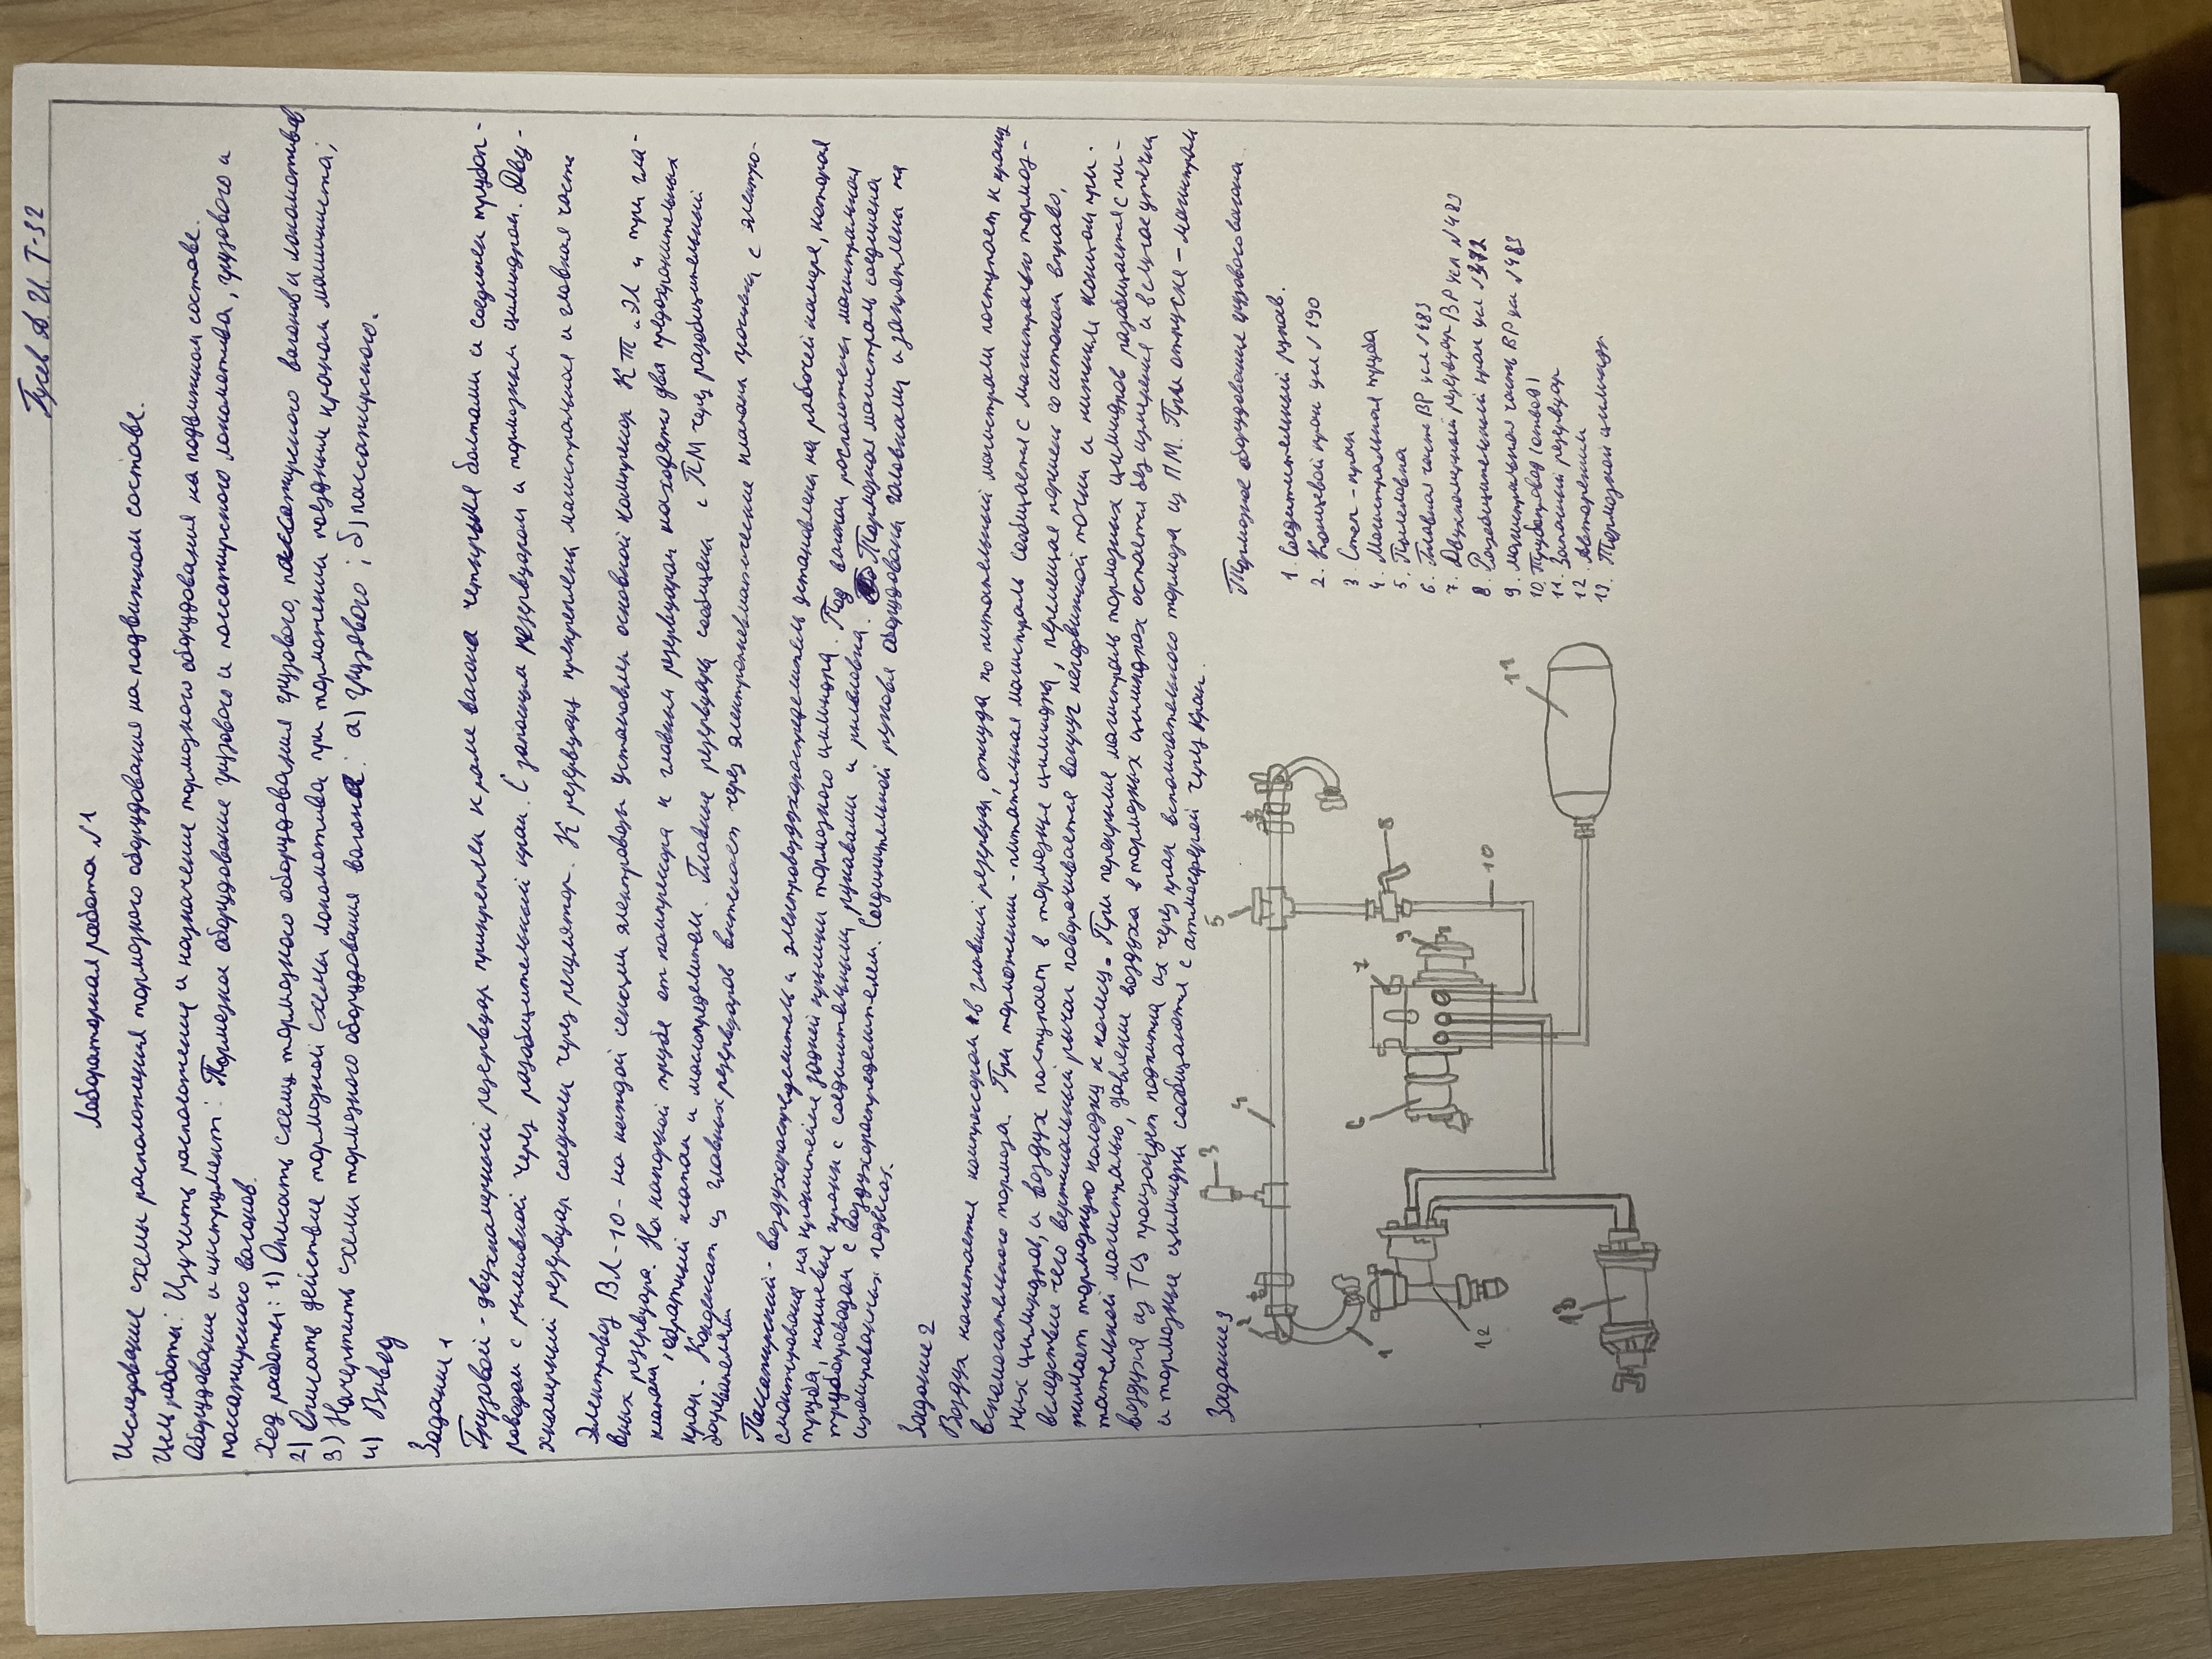 Гусев Д. И. Т-32
Лабораторная работа №1
Исследование схемы расположения тормозного оборудования на подвижном составе.
Цель работы: Изучить расположение и назначение тормозного оборудования на подвижном составе.
Оборудование и инструмент: Тормозное оборудование грузового и пассажирского локомотива, грузового и
пассажирского вагонов.
Ход работы: 1) Описать схему тормозного оборудования грузового, пассажирского вагонов и локомотивов
2) Описать действие тормозной схемы локомотива при торможении поездным краном машиниста;
3) Начертить схемы тормозного оборудования вагона: а) грузового; б) пассажирского.
4) Вывод
Задание 1
Грузовой - двухкамерный резервуар прикреплен к раме вагона четырьмя болтами и соединен трубоп-
роводом с пылеловкой через разобщительный кран. С запасным резервуаром и тормозным цилиндром. Двух-
камерный резервуар соединен через регулятор. К резервуару прикреплена магистральная и главная часть
Электровоз ВЛ-10 - на каждой секции электровоза установлен основной компрессор КТ-6Эл и три гла-
вных резервуара. На напорной трубе от компрессора к главным резервуарам находятся два предохранительных
клапана, обратный клапан и маслоотделитель. Главные резервуары сообщены с ПМ через разобщительный
кран. Конденсат из главных резервуаров вытекает через электропневматические клапана продувки с электро-
догревателем
Пассажирский - воздухораспределитель и электровоздухораспределитель установлены на рабочей камере, которая
смонтирована на кронштейне задней крышки тормозного цилиндра. Под вагоном расположены магистральная
труба, концевые краны с соединительными рукавами и пылеловка. Тормозная магистраль соединена
трубопроводом с воздухораспределителем. Соединительной рукава оборудована головками и закреплены на
изолированных подвесках.
Задание 2
Воздух нагнетается компрессором в главный резервуар, откуда по питательной магистрали поступает к крану
вспомогательного тормоза. При торможении - питательная магистраль сообщается с магистралью тормоз-
ных цилиндров, и воздух поступает в тормозные цилиндры, перемещая поршень со штоком вправо,
вследствие чего вертикальный рычаг поворачивается вокруг неподвижной точки и нижним концом при-
жимает тормозную колодку к колесу. При перекрыше магистраль тормозных цилиндров разобщается с пи-
тательной магистралью, давление воздуха в тормозных цилиндрах остается без изменения и в случае утечки
воздуха из ТЦ произойдет подпитка их через кран вспомогательного тормоза из ПМ. При отпуске - магистрали
и тормозные цилиндры сообщаются с атмосферой через кран.
Задание 3
Тормозное оборудование грузового вагона
1. Соединительный рукав.
2. Концевой кран усл №190
3. Стоп-кран
4. Магистральная труба
5. Пылеловка
6. Главная часть ВР усл №483
7. Двухкамерный резервуар ВР усл №483
8. Разобщительный кран усл №372
9. Магистральная часть ВР усл №483
10. Трубопровод (отвод)
11. Запасный резервуар
12. Авторежим
13. Тормозной цилиндр
1
2
3
4
5
6
7
8
9
10
11
12
13